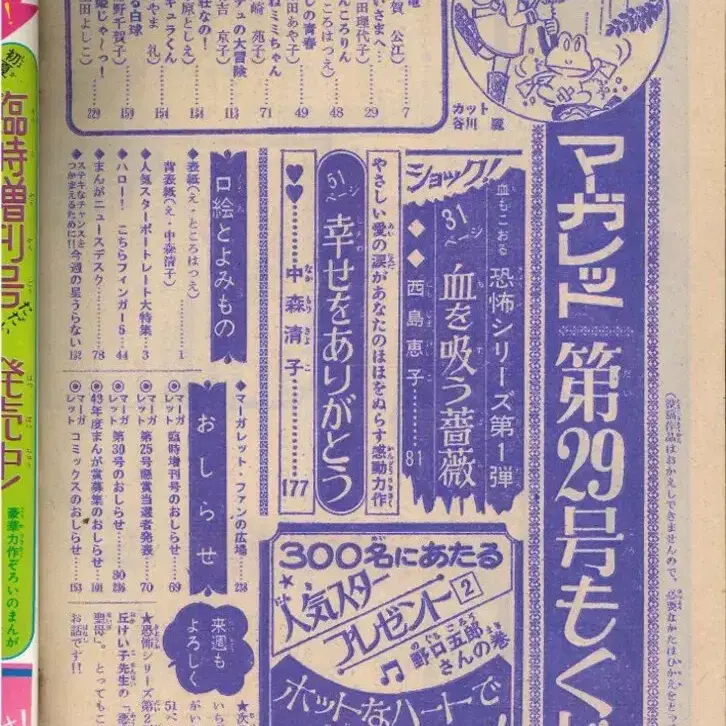 マーガレット 第29号もく
(投稿作品はおかえしできませんので、必要なかたはひかえをと
カット
谷川
賀 公江
7
いさまへ…
田理代子
29
んころりん
ころはつえ
48
しの青春
田あや子
49
ねミミちゃん
崎 苑子
71
デュの大冒険
吉 京子
113
荘なの!
原としえ
134
キュラくん
やま 礼
154
る白球
野千賀子
159
姫じゃ〜っ!
田よしこ
229
ショック!
血もこおる 恐怖シリーズ第1弾
31ページ 血を吸う薔薇
◆◆西島恵子
81
やさしい愛の涙があなたのほほをぬらす感動力作
51ページ 幸せをありがとう
♥♥中森清子
177
口絵とよみもの
◆表紙(え・ところはつえ)
背表紙(え・中森清子)
1
◆人気スターポートレート大特集
3
◆ハロー! こちらフィンガー5
44
◆まんがニュースデスク
78
◆ステキなチャンスをつかまえるために!!今週の星うらない
152
おしらせ
◆マーガレット・ファンの広場
238
◉マーガレット 臨時増刊号のおしらせ
69
◉マーガレット 第25号懸賞当選者発表
70
◉マーガレット 第30号のおしらせ
80
◉43年度まんが賞募集のおしらせ
101
◉マーガレット コミックスのおしらせ
153
300名にあたる
★人気スタープレゼント2
♫野口五郎さんの巻
ホットなハートで
来週もよろしく
★恐怖シリーズ第2
丘けい子先生の「悪
聖母」。とってもこ
お話です!!
★次
51ペ
いち
がい
初夏
臨時増刊号 ただいま 発売中!
豪華力作ぞろいのまんが